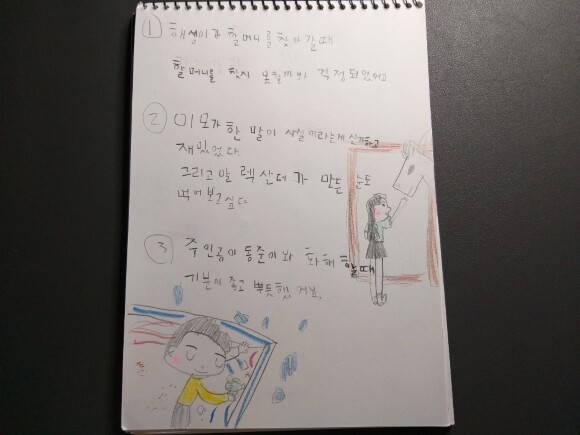 ① 해성이가 할머니를 찾아갈때
할머니를 찾지 못할까봐 걱정되었어요
② 이모가 한 말이 사실이라는게 신기하고
재밌었다
그리고 알렉산더가 만든 눈도
먹어보고 싶다
③ 주인공이 동준이와 화해할때
기분이 좋고 뿌듯했거든.